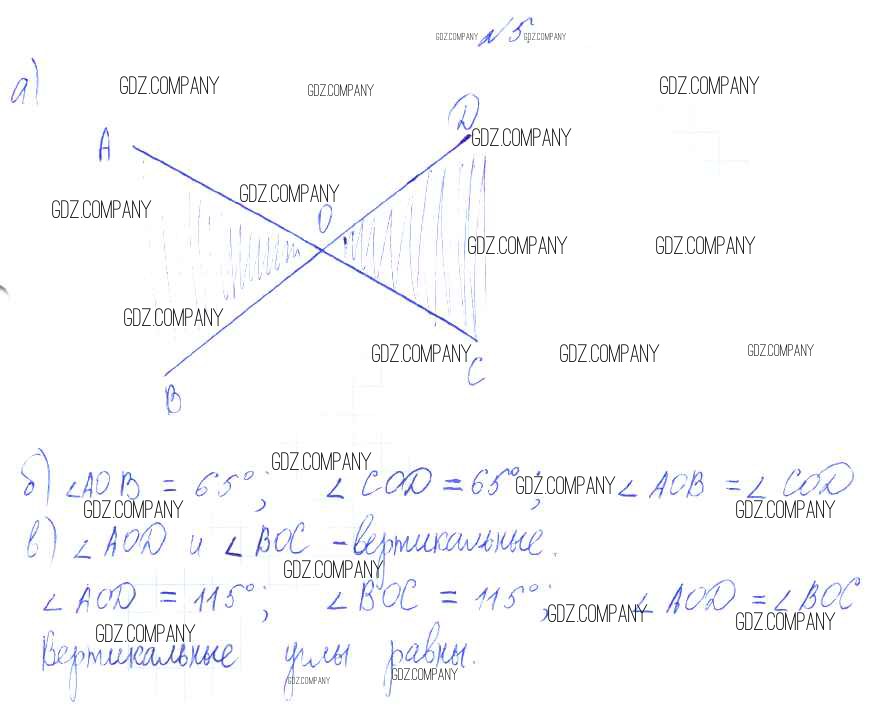 GDZ.COMPANY №5. GDZ.COMPANY
а) GDZ.COMPANY GDZ.COMPANY GDZ.COMPANY
A D GDZ.COMPANY
GDZ.COMPANY GDZ.COMPANY
O GDZ.COMPANY GDZ.COMPANY
GDZ.COMPANY
GDZ.COMPANY GDZ.COMPANY GDZ.COMPANY
B C
GDZ.COMPANY
б) ∠AOB = 65°; ∠COD = 65°; GDZ.COMPANY ∠AOB = ∠COD
GDZ.COMPANY GDZ.COMPANY
в) ∠AOD и ∠BOC - вертикальные.
GDZ.COMPANY
∠AOD = 115°; ∠BOC = 115°; ∠AOD = ∠BOC
GDZ.COMPANY GDZ.COMPANY GDZ.COMPANY
Вертикальные углы равны.
GDZ.COMPANY GDZ.COMPANY